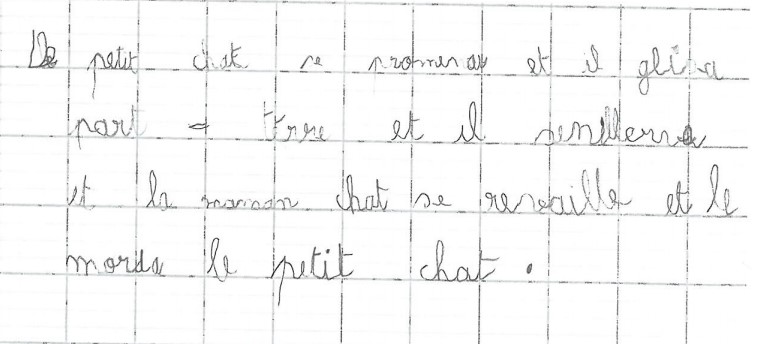 De petit chat se promena et il glisa
part a terre et il
et la maman chat se reveille et le
morda le petit chat.